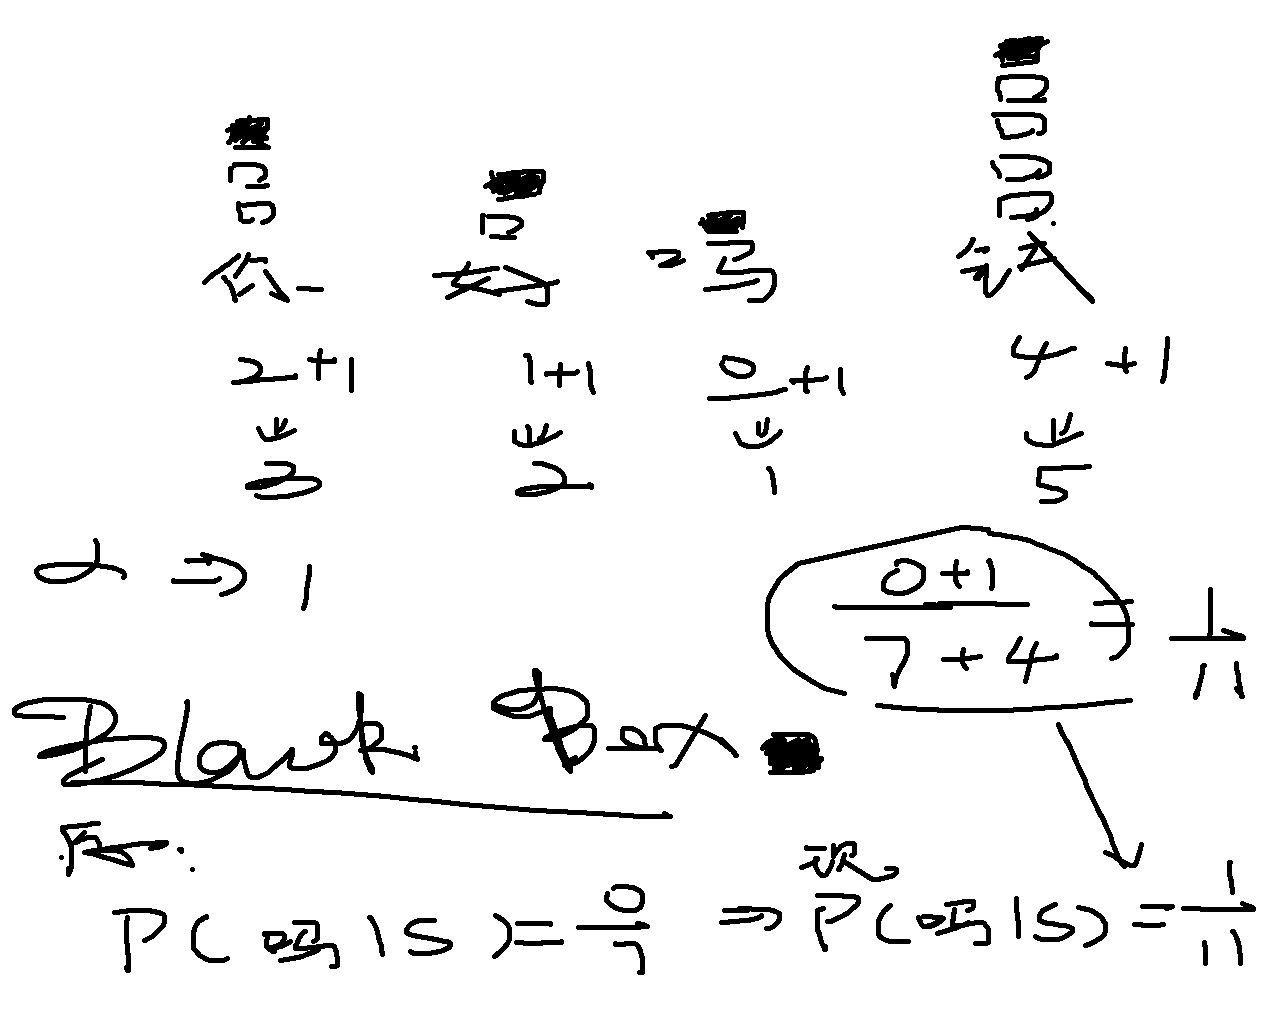 你 好 吗 很
2+1 1+1 0+1 4+1
3 2 1 5
α ⇒ 1
0+1
7+4
= 1/11
Black Box
P(吗|S)=0/7 ⇒ P(吗|S)=1/11